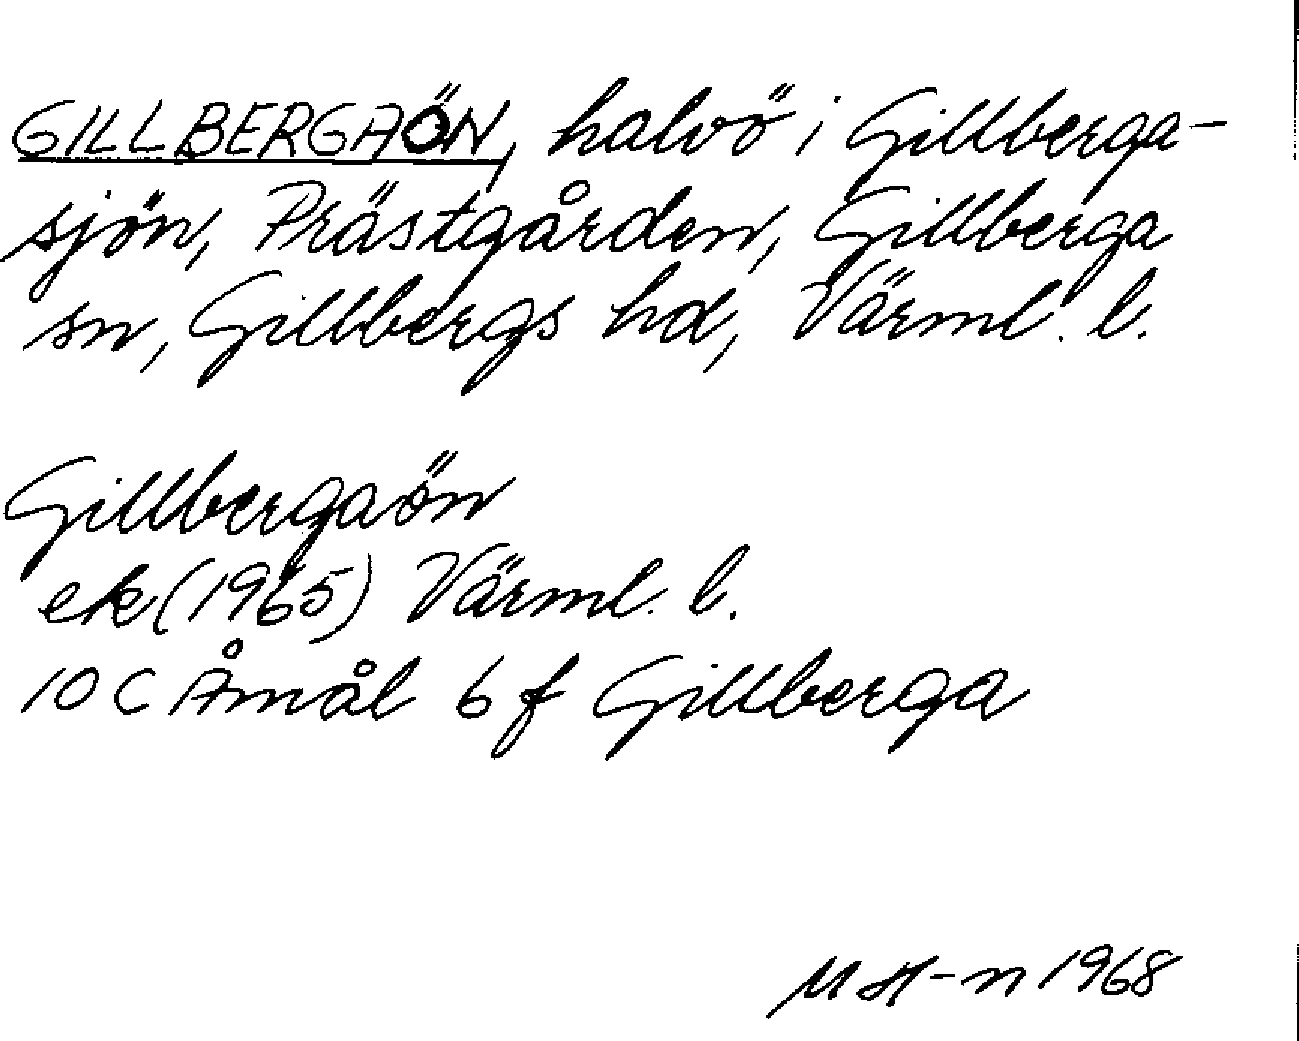 GILLBERGAÖN, halvö i Gillberga-
sjön, Prästgården, Gillberga
sn, Gillbergs hd, Värml. l.
Gillbergaön
ek (1965) Värml. l.
10 C Åmål 6 f Gillberga
M H-n 1968